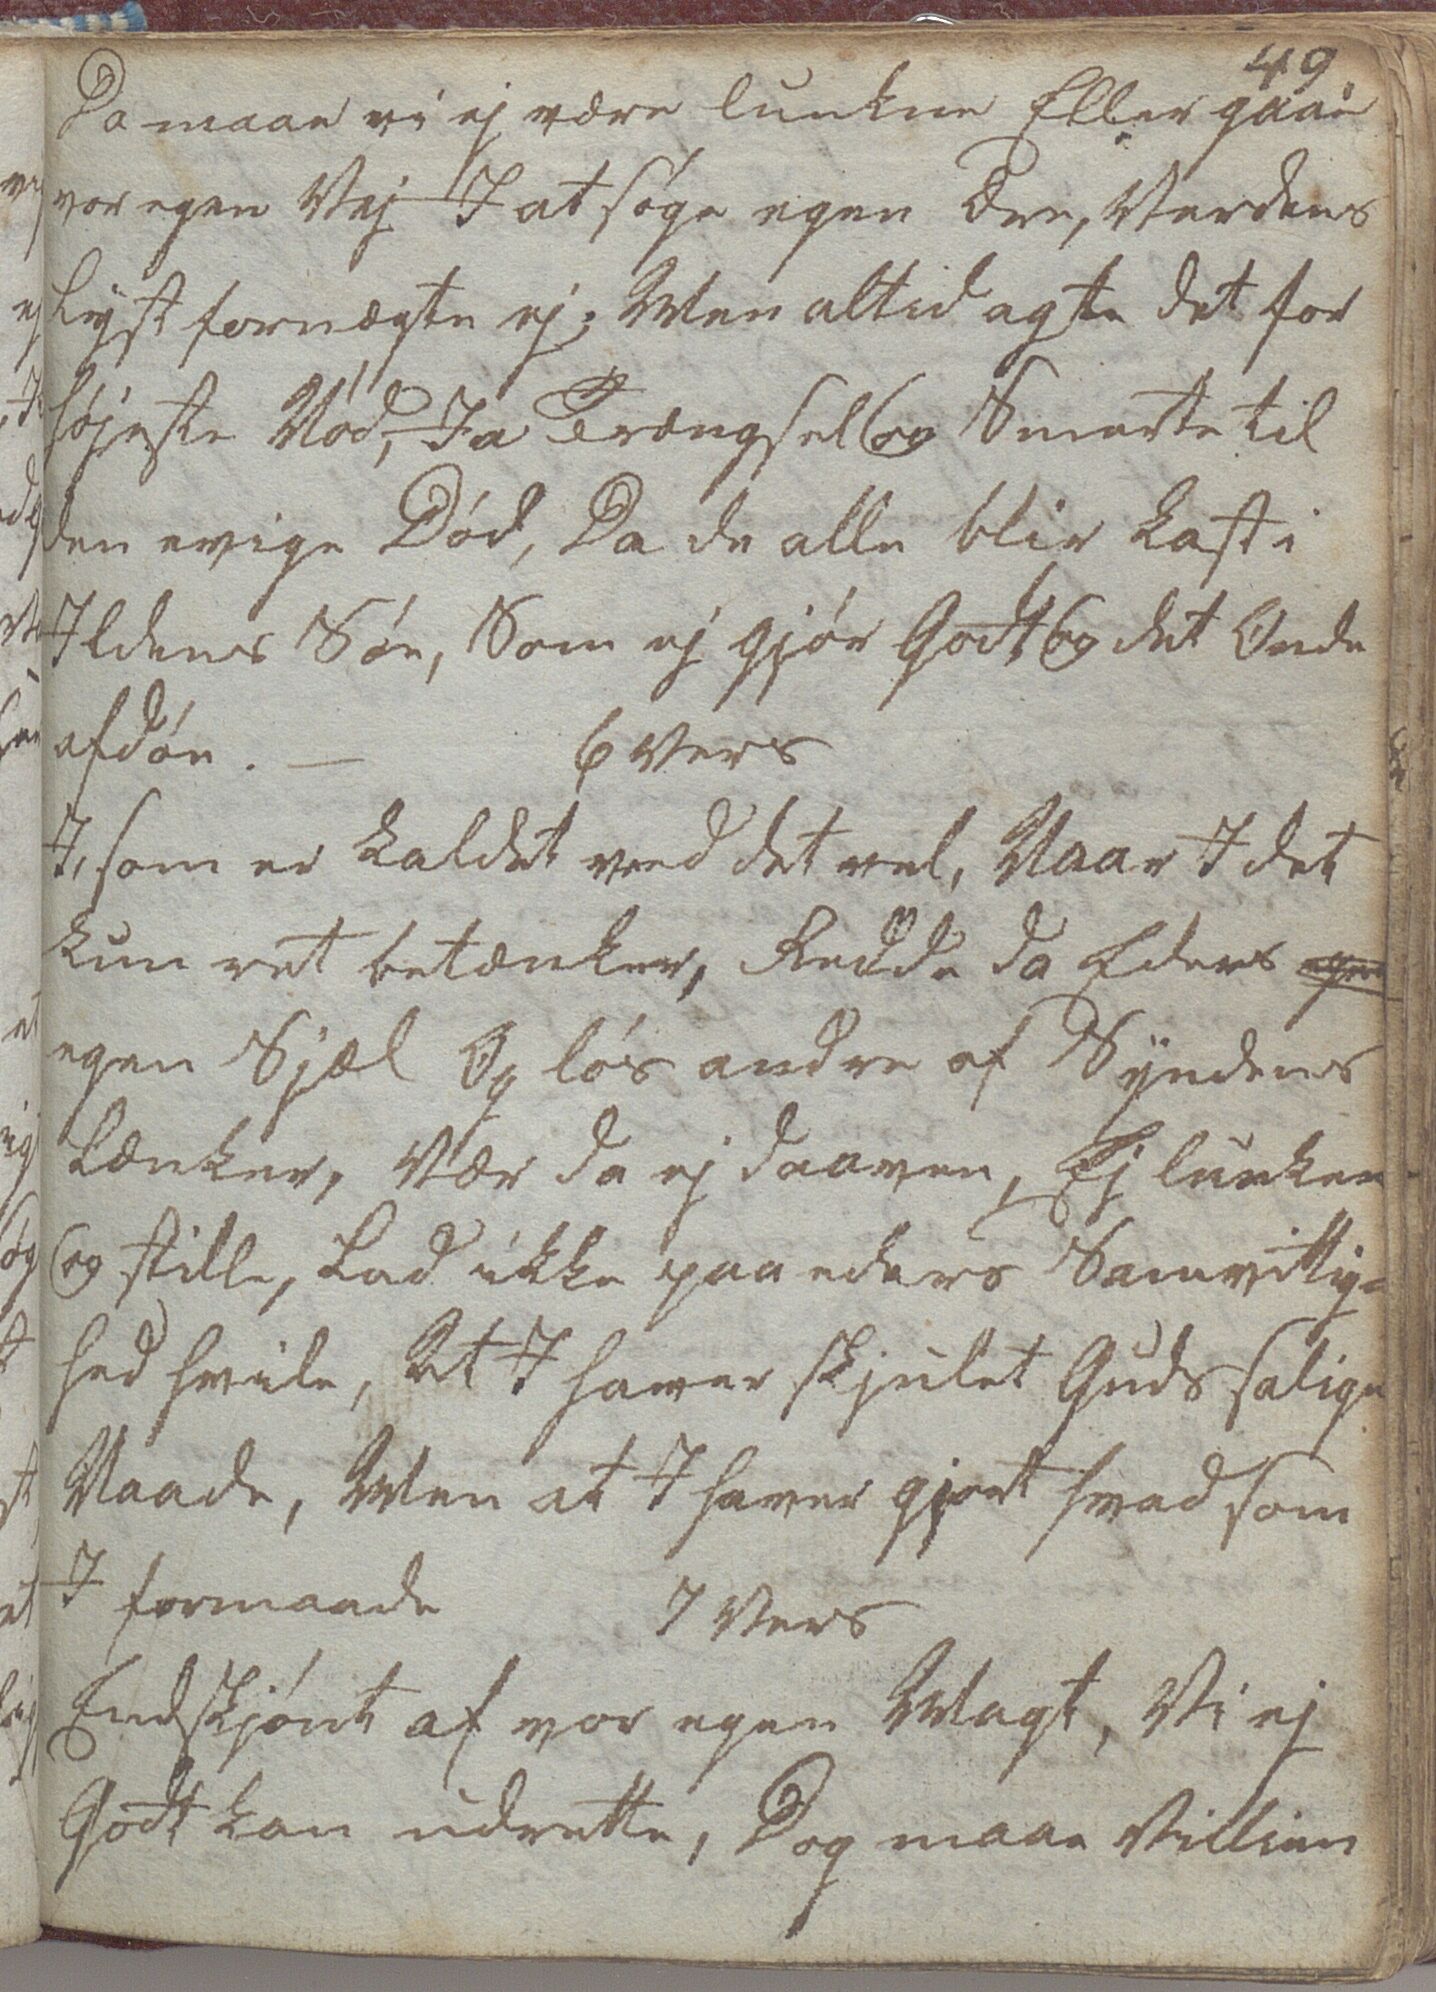 49
Da maae vi ej være lunkne Eller gaae
vor egen Vej I at søge egen Ære, Verdens
Lyst fornægte ej; Men altid agte det for
højeste Nød, Ja Trængsel og Smerte til
den evige Død, Da de alle blir kast i
Ildens Søe, Som ej gjør Godt og det Onde
afdøe. — 6 Vers
I, som er kaldet ved det vel, Naar I det
kun ret betænker, Redde da Eders egen
egen Sjæl Og løs andre af Syndens
Lænker, Vær da ej daaven, Ej lunken
og stille, Lad ikke paa eders Samvittig-
hed hvile, At I haver skjulet Guds salige
Naade, Men at I haver gjort hvad som
I formaade 7 Vers
Endskjønt af vor egen Magt, Vi ej
Godt kan udrette, Dog maae Villien